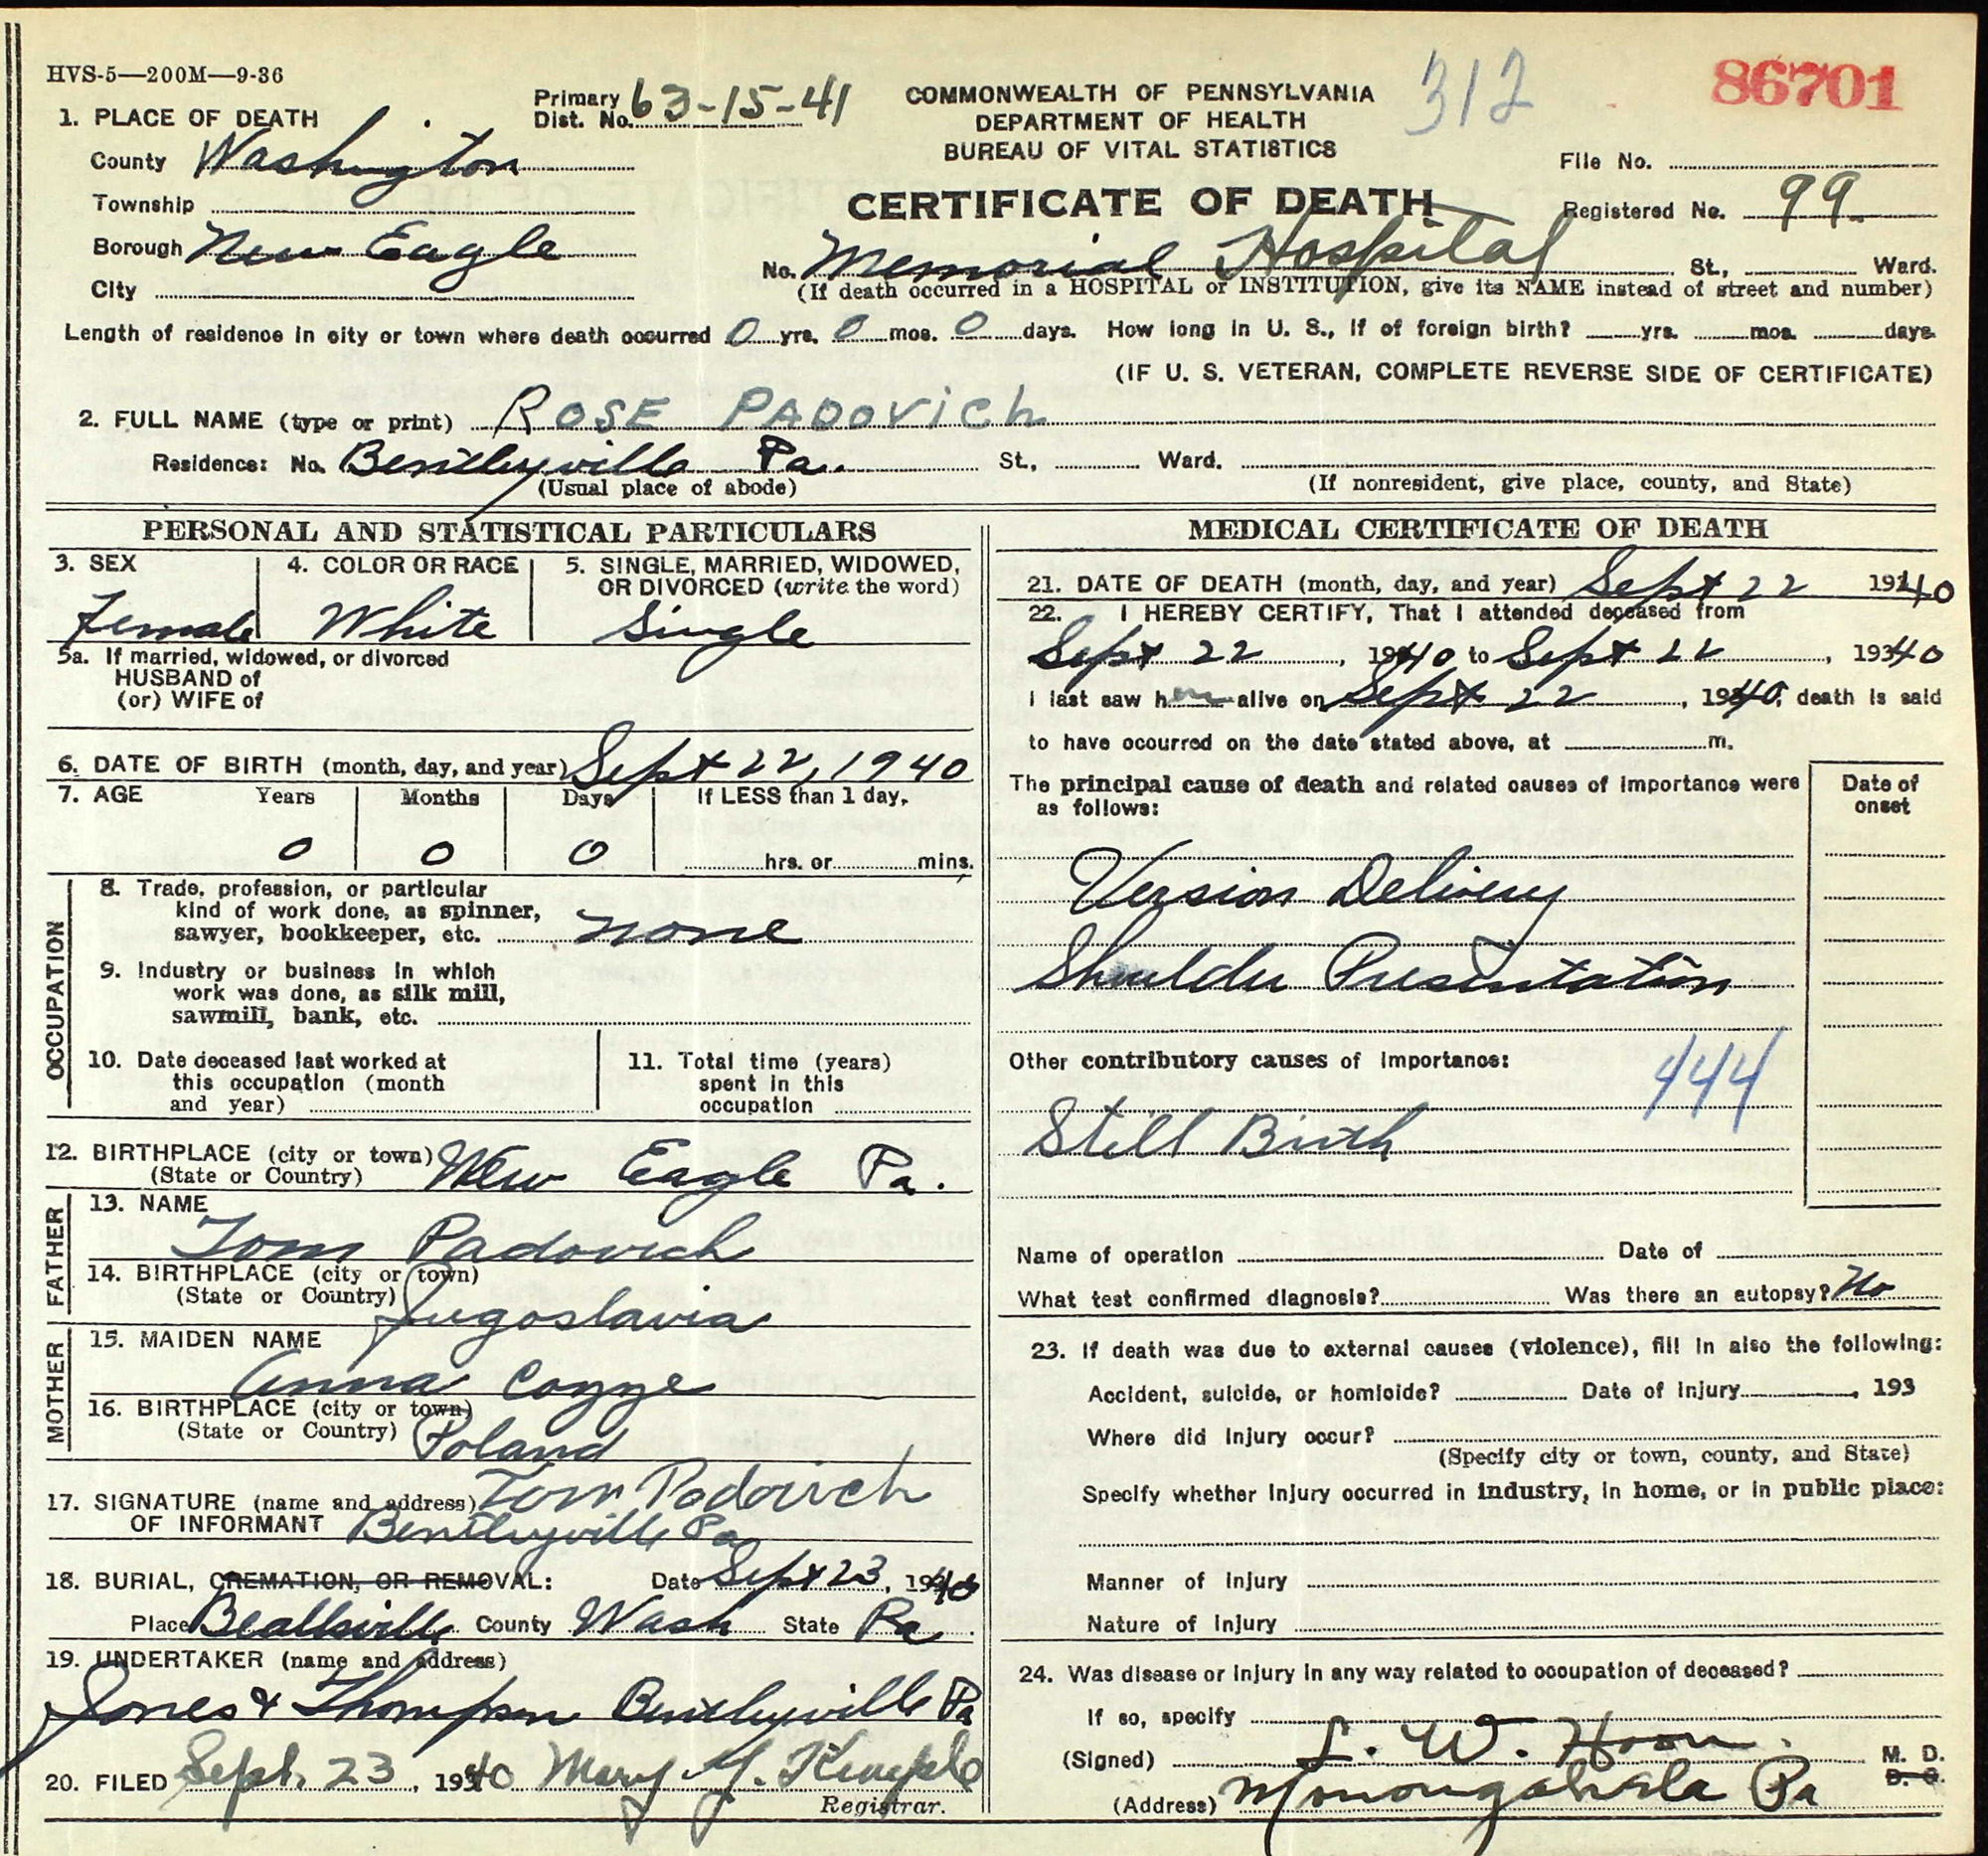 HVS-5—200M—9-36
Primary Dist. No. 63-15-41
COMMONWEALTH OF PENNSYLVANIA
DEPARTMENT OF HEALTH
BUREAU OF VITAL STATISTICS
312
86701
1. PLACE OF DEATH
County Washington
Township
Borough New Eagle
City
CERTIFICATE OF DEATH
File No.
Registered No. 99
No. Memorial Hospital St., Ward.
(If death occurred in a HOSPITAL or INSTITUTION, give its NAME instead of street and number)
Length of residence in city or town where death occurred 0 yrs. 0 mos. 0 days. How long in U. S., if of foreign birth? yrs. mos. days.
(IF U. S. VETERAN, COMPLETE REVERSE SIDE OF CERTIFICATE)
2. FULL NAME (type or print) ROSE PADOVICH
Residence: No. Bentleyville Pa. St., Ward.
(Usual place of abode) (If nonresident, give place, county, and State)
PERSONAL AND STATISTICAL PARTICULARS
3. SEX 4. COLOR OR RACE 5. SINGLE, MARRIED, WIDOWED,
OR DIVORCED (write the word)
Female White Single
5a. If married, widowed, or divorced
HUSBAND of
(or) WIFE of
6. DATE OF BIRTH (month, day, and year) Sept 22, 1940
7. AGE Years Months Days If LESS than 1 day,
0 0 0 hrs. or mins.
OCCUPATION
8. Trade, profession, or particular
kind of work done, as spinner,
sawyer, bookkeeper, etc. none
9. Industry or business in which
work was done, as silk mill,
sawmill, bank, etc.
10. Date deceased last worked at
this occupation (month
and year)
11. Total time (years)
spent in this
occupation
12. BIRTHPLACE (city or town) New Eagle Pa.
(State or Country)
FATHER
13. NAME
Tom Padovich
14. BIRTHPLACE (city or town)
(State or Country) Jugoslavia
MOTHER
15. MAIDEN NAME
Anna
16. BIRTHPLACE (city or town)
(State or Country) Poland
17. SIGNATURE (name and address) Tom Padovich
OF INFORMANT Bentleyville Pa
18. BURIAL, CREMATION, OR REMOVAL: Date Sept 23, 1940
Place Beallsville County Wash State Pa
19. UNDERTAKER (name and address)
Jones & Thompson Bentleyville Pa
20. FILED Sept. 23, 1940 Mary Y.
Registrar.
MEDICAL CERTIFICATE OF DEATH
21. DATE OF DEATH (month, day, and year) Sept 22 1940
22. I HEREBY CERTIFY, That I attended deceased from
Sept 22, 1940 to Sept 22, 1940
I last saw her alive on Sept 22, 1940, death is said
to have occurred on the date stated above, at m.
The principal cause of death and related causes of importance were
as follows:
Date of
onset
Version Delivery
Shoulder Presentation
Other contributory causes of importance:
444
Still Birth
Name of operation Date of
What test confirmed diagnosis? Was there an autopsy? No
23. If death was due to external causes (violence), fill in also the following:
Accident, suicide, or homicide? Date of injury , 193
Where did injury occur?
(Specify city or town, county, and State)
Specify whether injury occurred in industry, in home, or in public place:
Manner of injury
Nature of injury
24. Was disease or injury in any way related to occupation of deceased?
If so, specify
(Signed) L. W. Hoon. M. D.
D. O.
(Address) Monongahela Pa